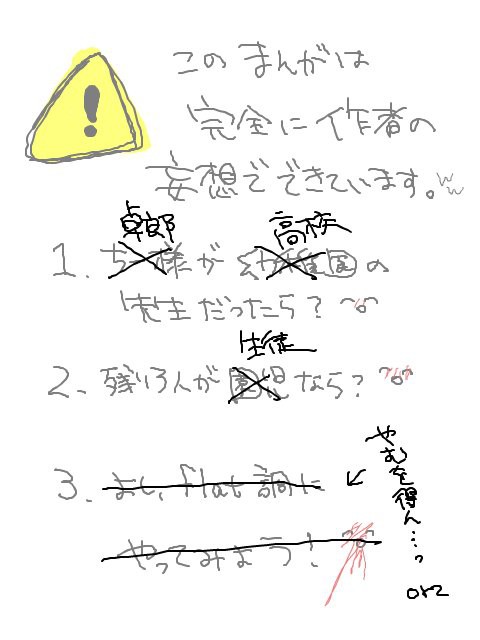 !
このまんがは
完全に作者の
妄想でできています。ww
卓郎 高校
1. ちー様が幼稚園の
先生だったら?
生徒
2. 残り3人が園児なら?
3. よし、flat調に
やってみよう!
やむを得ん…っ
orz